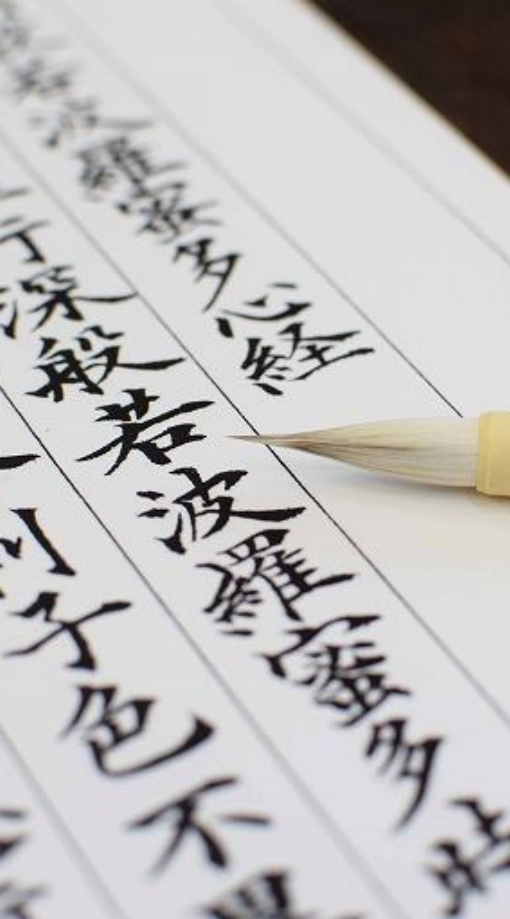 般若波羅蜜多心経
行深般若波羅蜜多時
利子色不異